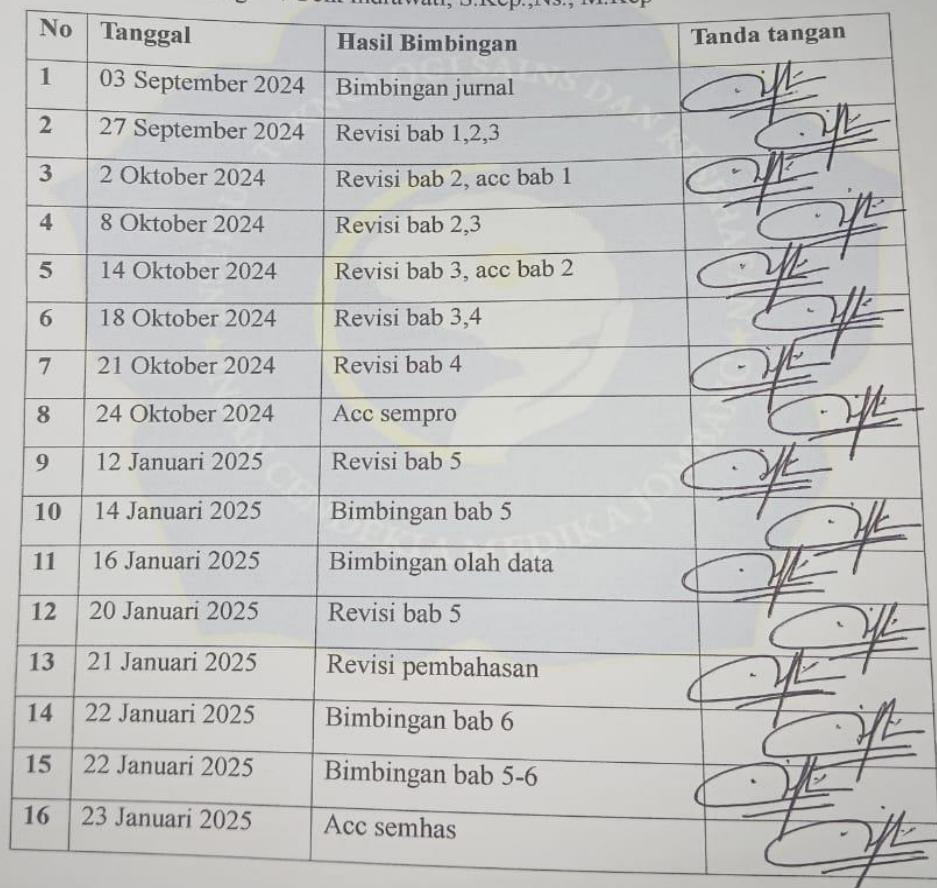 Indrawati, S.Kep.,Ns., M.Kep
No Tanggal Hasil Bimbingan Tanda tangan
1 03 September 2024 Bimbingan jurnal
2 27 September 2024 Revisi bab 1,2,3
3 2 Oktober 2024 Revisi bab 2, acc bab 1
4 8 Oktober 2024 Revisi bab 2,3
5 14 Oktober 2024 Revisi bab 3, acc bab 2
6 18 Oktober 2024 Revisi bab 3,4
7 21 Oktober 2024 Revisi bab 4
8 24 Oktober 2024 Acc sempro
9 12 Januari 2025 Revisi bab 5
10 14 Januari 2025 Bimbingan bab 5
11 16 Januari 2025 Bimbingan olah data
12 20 Januari 2025 Revisi bab 5
13 21 Januari 2025 Revisi pembahasan
14 22 Januari 2025 Bimbingan bab 6
15 22 Januari 2025 Bimbingan bab 5-6
16 23 Januari 2025 Acc semhas